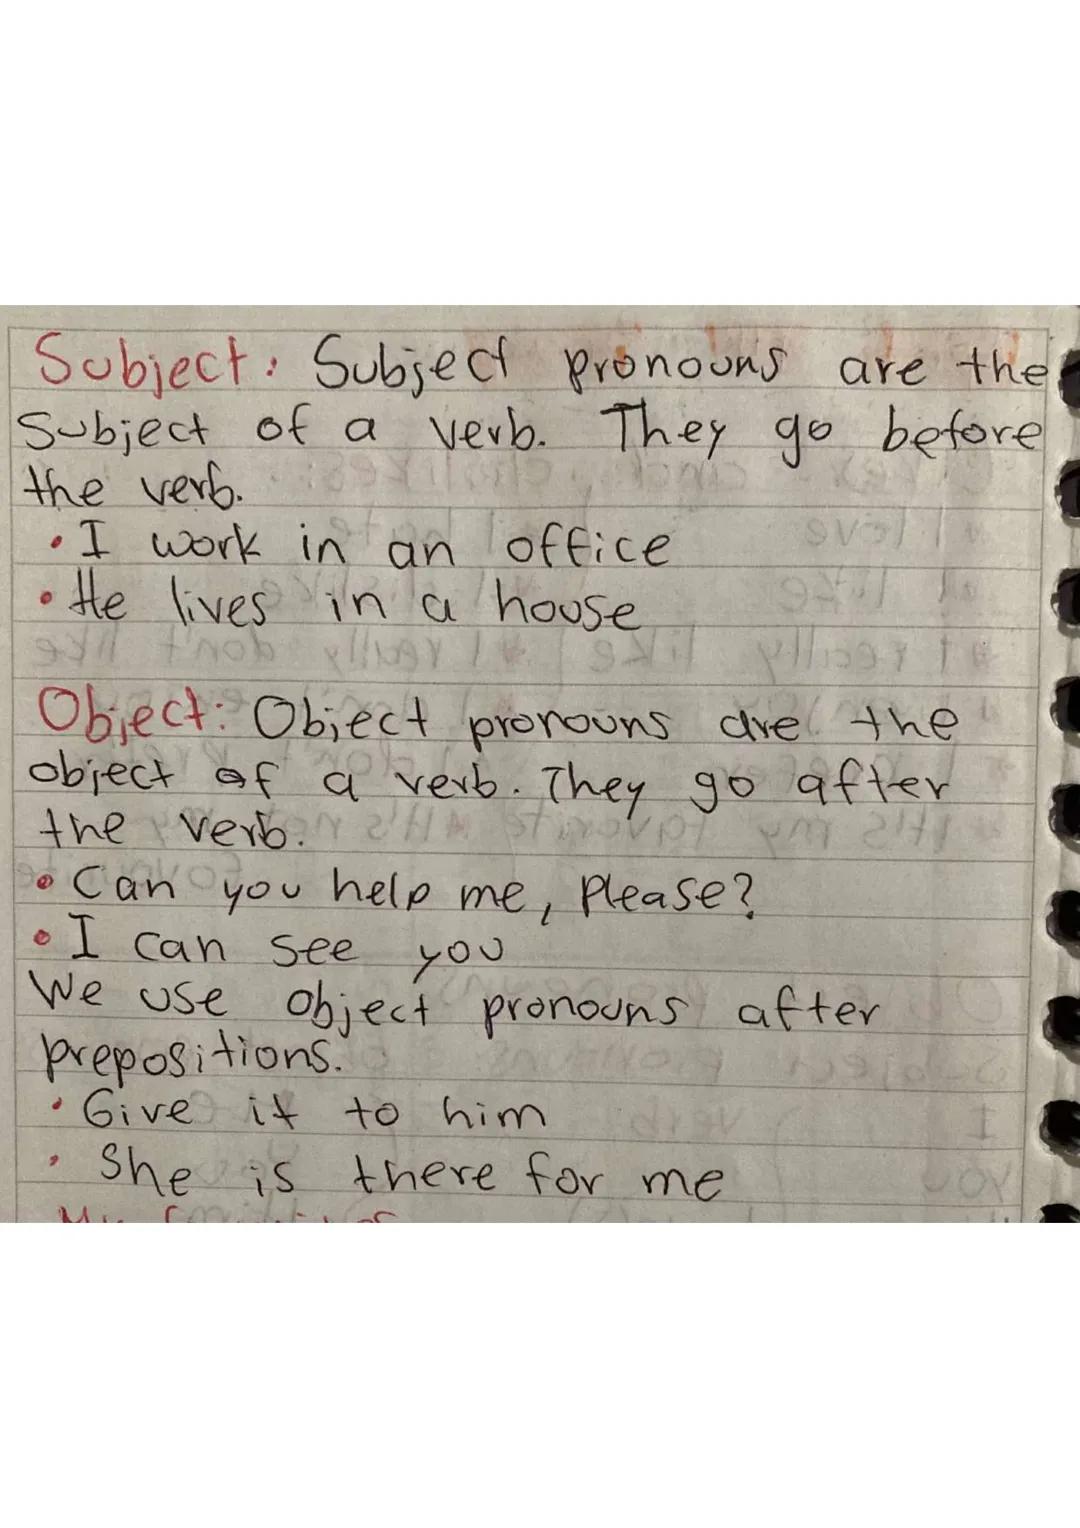 Subject: Subject pronouns are the
Subject of a verb. They go before
the verb.
• I work in an office
• He lives in a house
Object: Object pronouns are the
object of a verb. They go after
the verb.
• Can you help me, Please?
• I can see you
We use object pronouns after
prepositions.
• Give it to him
• She is there for me